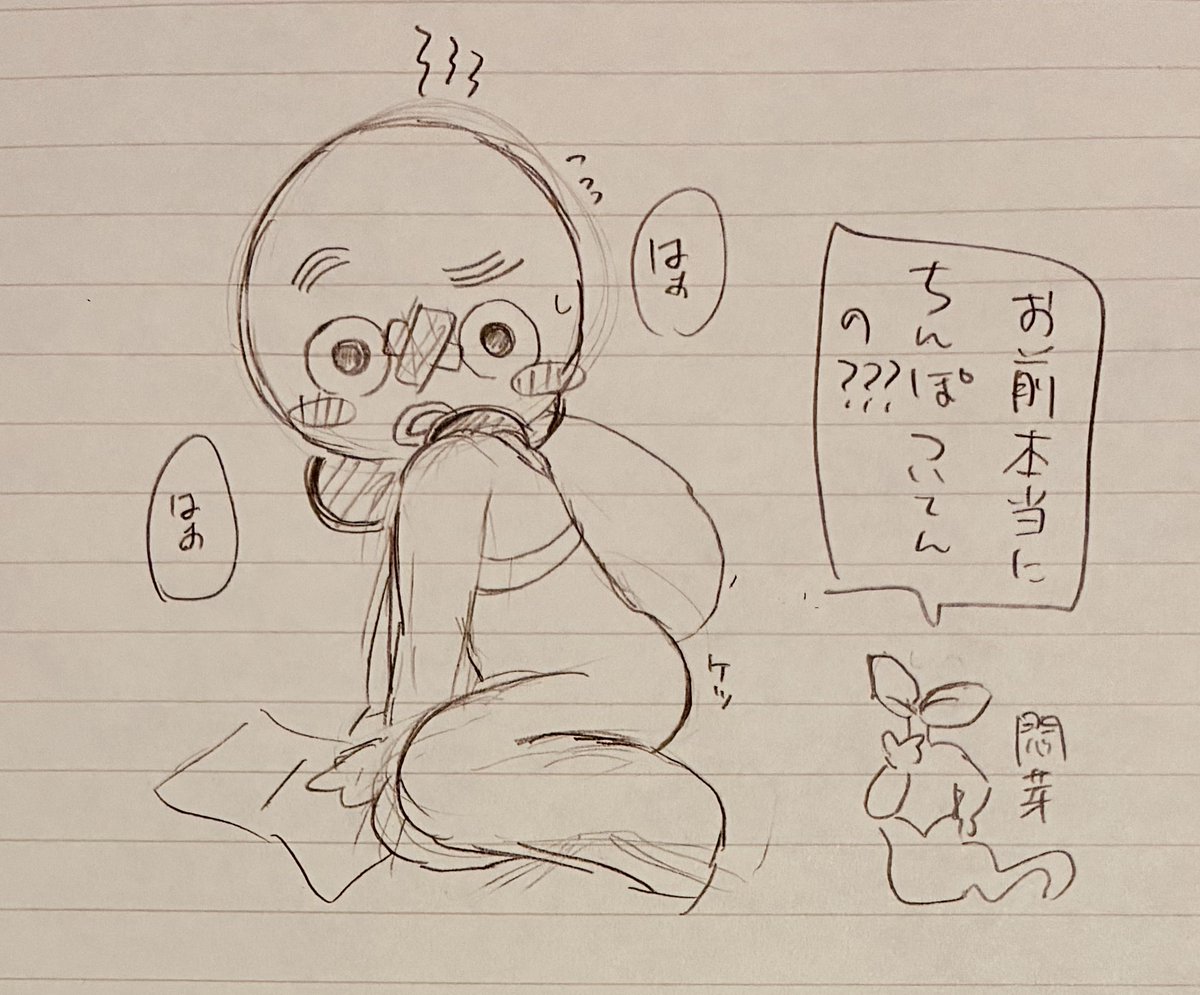 はぁ
お前本当に
ちんぽついてん
の???
はぁ
ケツ
悶芽